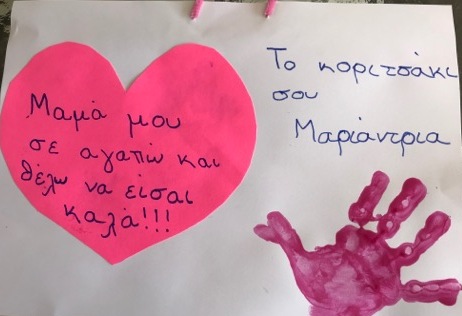 Μαμά μου
σε αγαπώ και
θέλω να είσαι
καλά!!!
Το κοριτσάκι
σου
Μαριάντρια